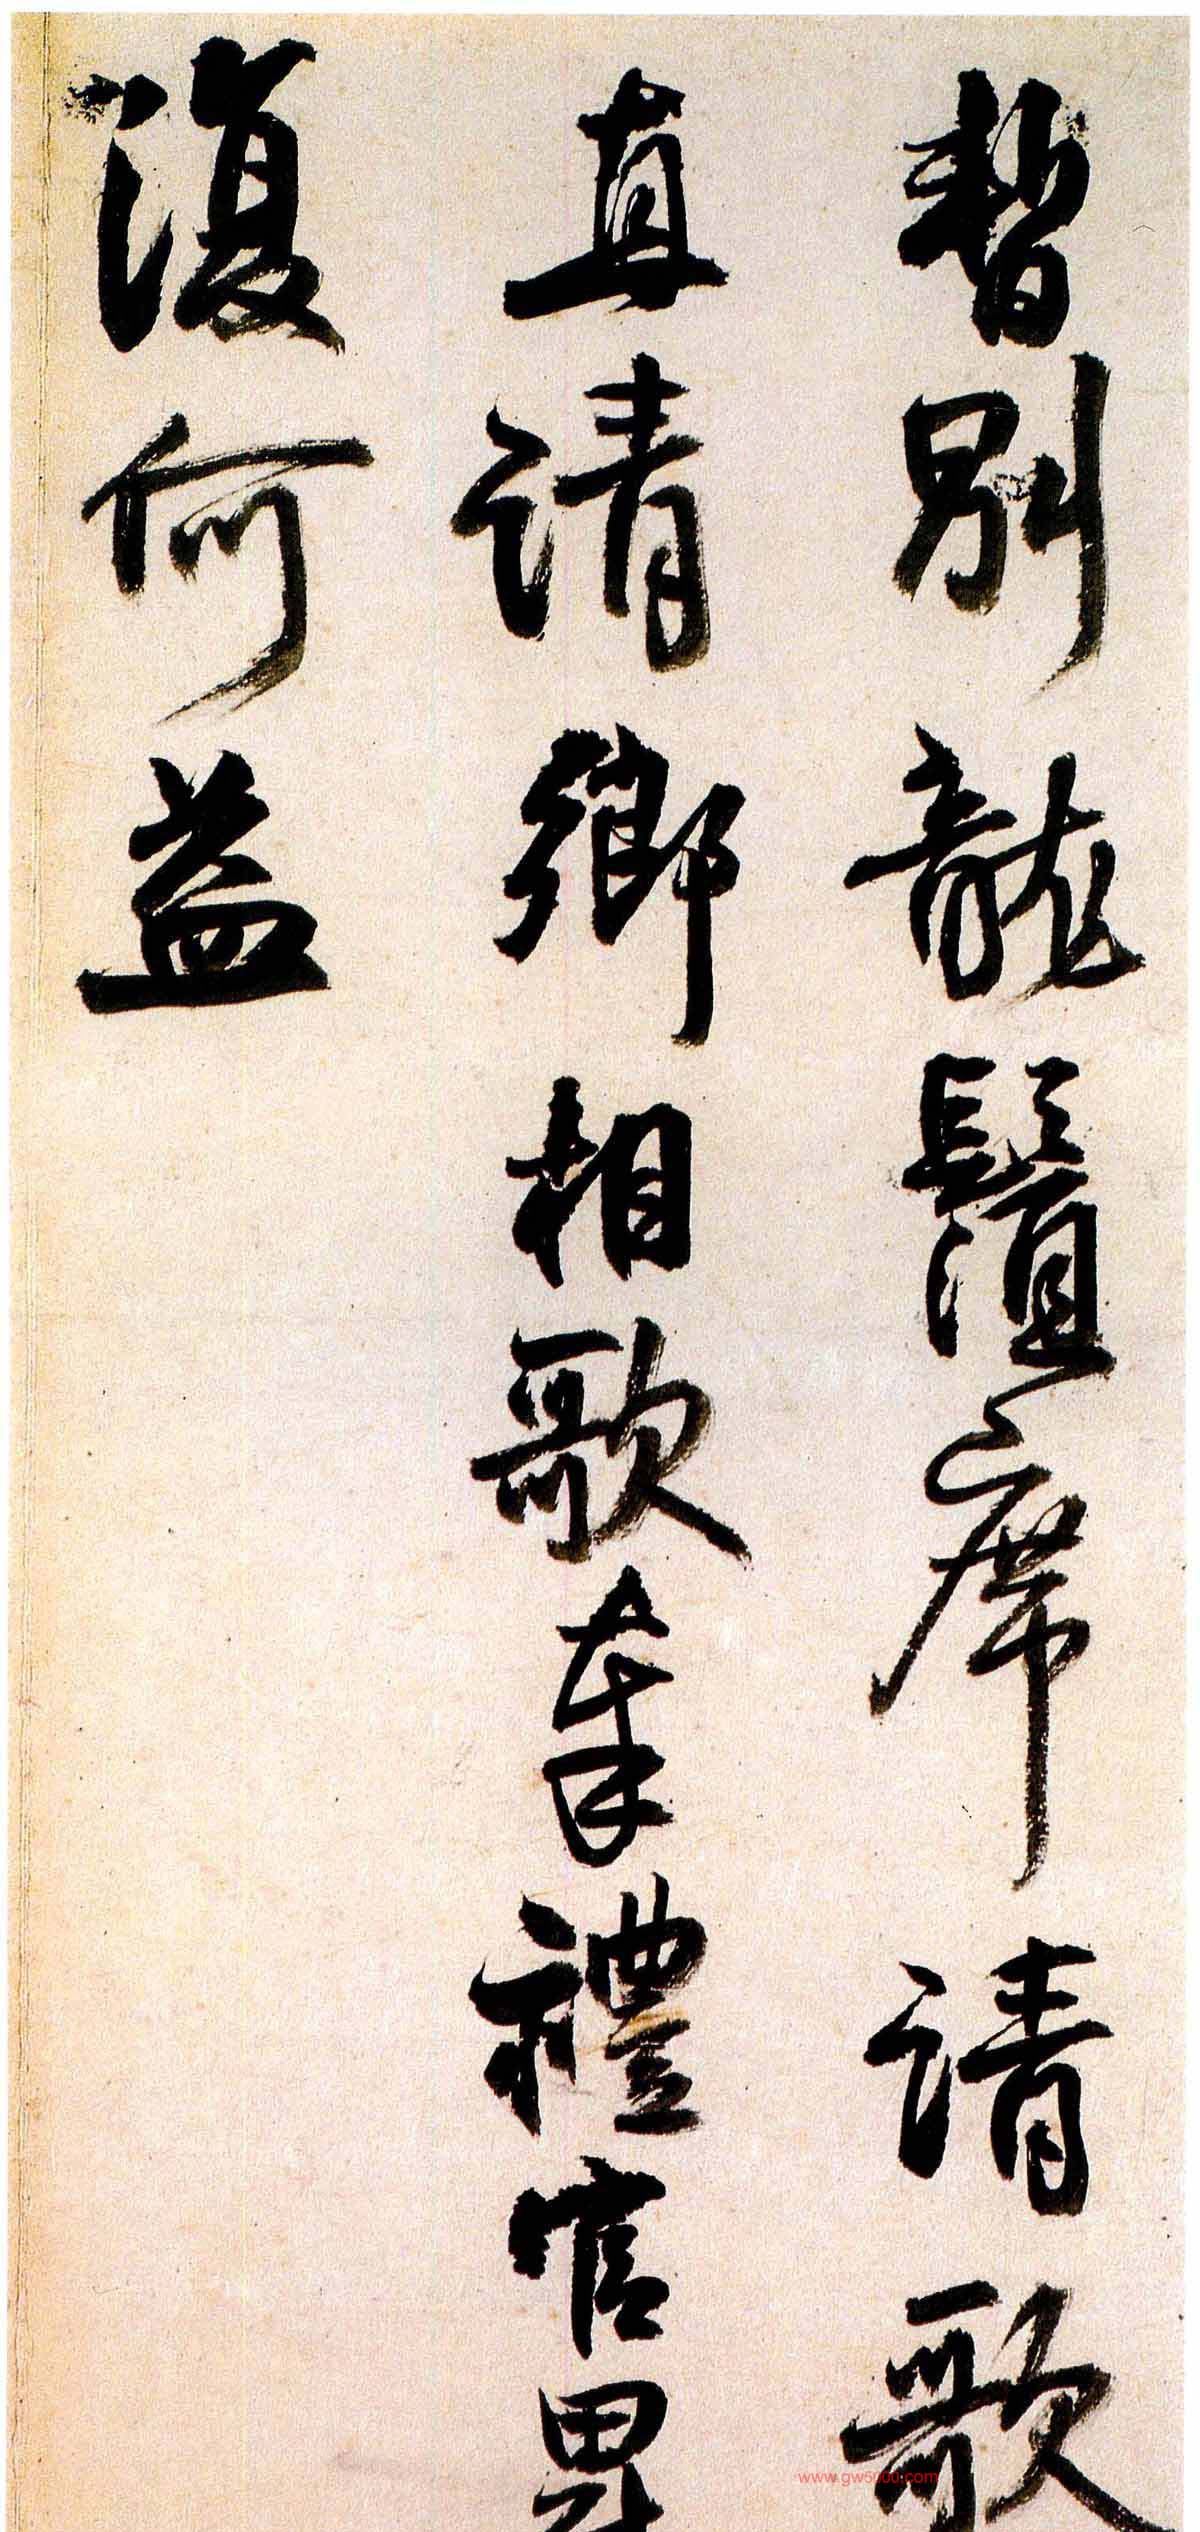 暫別龍鬚席請歌
直請鄉相歌奉禮官卑
復何益
www.gw5000.com